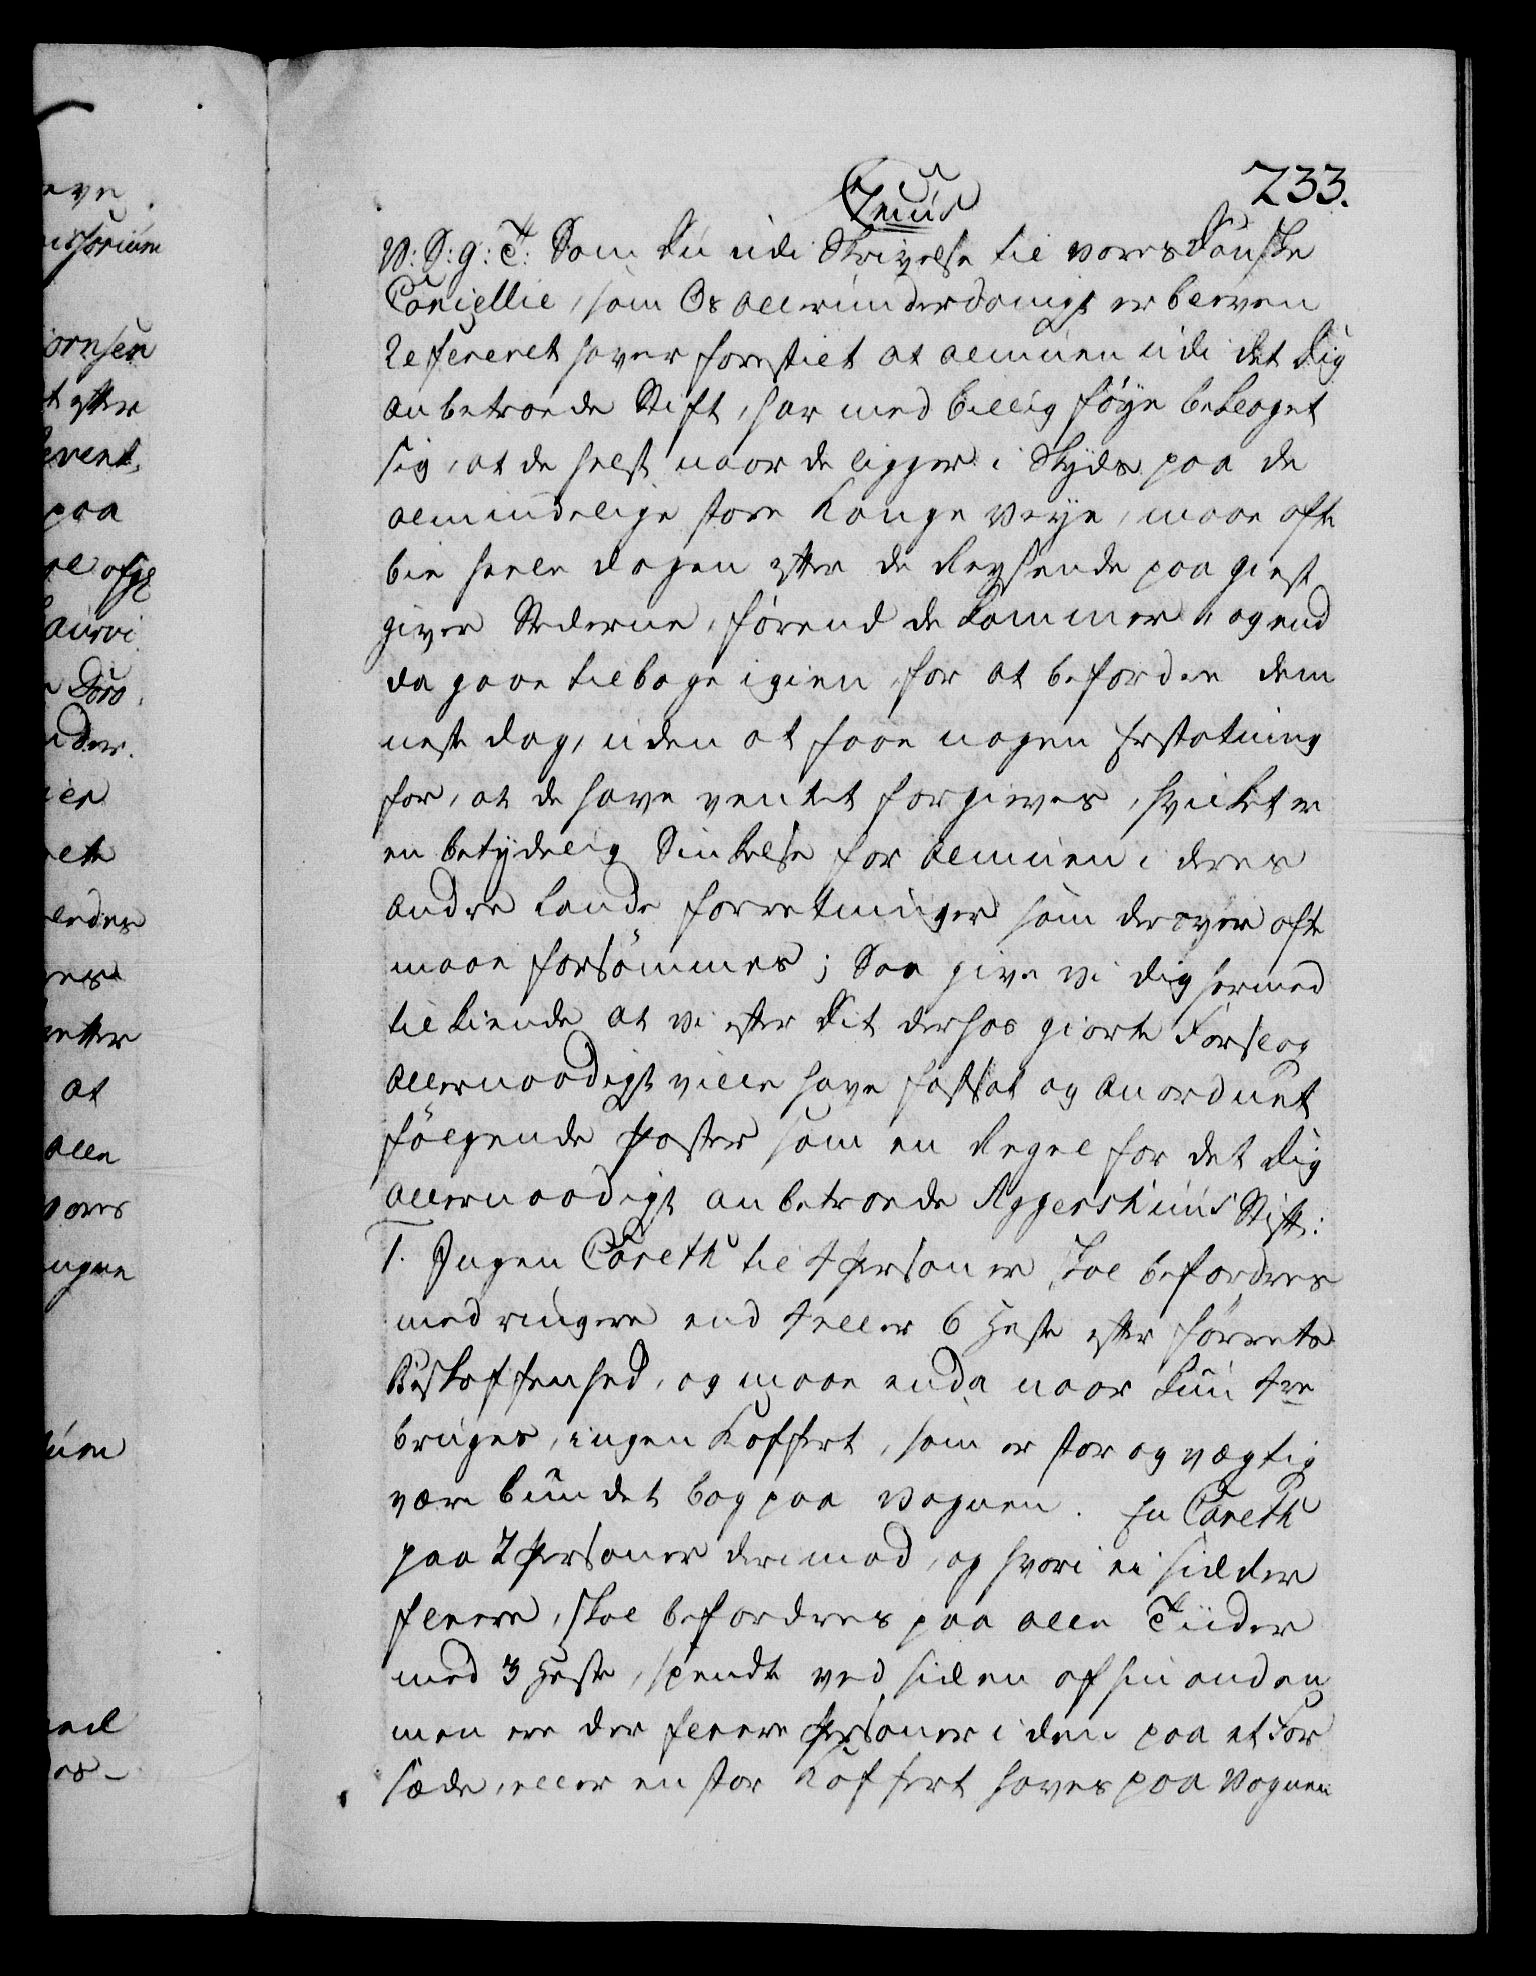 233.
V: S: g: T: Som Du udi Skrivelse til vores Danske
Cancellie, som Os allerunderdanigst er bleven
Refereret haver forestilet at Almuen udi det Dig
anbetroede Stift, har med billig føye beklaget
sig, at de helst naar de ligger i Skyds paa de
almindelige store Konge Veye, maae ofte
bie heele dagen efter de Reysende paa giest
giver Stederne, førend de kommer, og end
da gaae tilbage igien, for at befordre dem
neste dag, uden at faae nogen Erstatning
for, at de have ventet forgieves, hvilket er
en betydelig Sinkelse for Almuen i deres
andre Lands forretninger som derover ofte
maae forsømmes; Saa give vi dig hermed
tilkiende at vi efter Dit derhos giorte Forslag
allernaadigst ville have fastsat og anordnet
følgende Poster som en Regel for det Dig
allernaadigst anbetroede Aggershuus Stift:
1. Ingen Careth til 4 Personer skal befordres
med ringere end 4 eller 6 Heste efter førrets
Beskaffenhed, og maae enda naar kun 4re
bruges, ingen Koffert, som er stor og vægtig
være bundet bag paa Vognen. En Careth
paa 2 Personer derimod, og hvori ei sidder
fleere, skal befordres paa alle Tiider
med 3 Heste, spendt ved siden af hinanden
men ere der fleere Personer i den paa et For
sæde, eller en stor Koffert haves paa Vognen